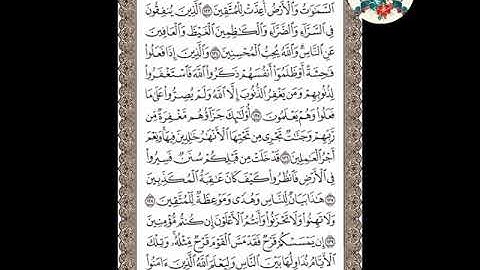 السَّمَٰوَٰتُ وَالْأَرْضُ أُعِدَّتْ لِلْمُتَّقِينَ ١٣٣ الَّذِينَ يُنفِقُونَ
فِي السَّرَّاءِ وَالضَّرَّاءِ وَالْكَاظِمِينَ الْغَيْظَ وَالْعَافِينَ
عَنِ النَّاسِ وَاللَّهُ يُحِبُّ الْمُحْسِنِينَ ١٣٤ وَالَّذِينَ إِذَا فَعَلُوا
فَاحِشَةً أَوْ ظَلَمُوا أَنفُسَهُمْ ذَكَرُوا اللَّهَ فَاسْتَغْفَرُوا
لِذُنُوبِهِمْ وَمَن يَغْفِرُ الذُّنُوبَ إِلَّا اللَّهُ وَلَمْ يُصِرُّوا عَلَىٰ مَا
فَعَلُوا وَهُمْ يَعْلَمُونَ ١٣٥ أُولَٰئِكَ جَزَاؤُهُم مَّغْفِرَةٌ مِّن
رَّبِّهِمْ وَجَنَّاتٌ تَجْرِي مِن تَحْتِهَا الْأَنْهَارُ خَالِدِينَ فِيهَا وَنِعْمَ
أَجْرُ الْعَامِلِينَ ١٣٦ قَدْ خَلَتْ مِن قَبْلِكُمْ سُنَنٌ فَسِيرُوا
فِي الْأَرْضِ فَانظُرُوا كَيْفَ كَانَ عَاقِبَةُ الْمُكَذِّبِينَ
١٣٧ هَٰذَا بَيَانٌ لِّلنَّاسِ وَهُدًى وَمَوْعِظَةٌ لِّلْمُتَّقِينَ ١٣٨
وَلَا تَهِنُوا وَلَا تَحْزَنُوا وَأَنتُمُ الْأَعْلَوْنَ إِن كُنتُم مُّؤْمِنِينَ
١٣٩ إِن يَمْسَسْكُمْ قَرْحٌ فَقَدْ مَسَّ الْقَوْمَ قَرْحٌ مِّثْلُهُ وَتِلْكَ
الْأَيَّامُ نُدَاوِلُهَا بَيْنَ النَّاسِ وَلِيَعْلَمَ اللَّهُ الَّذِينَ آمَنُوا